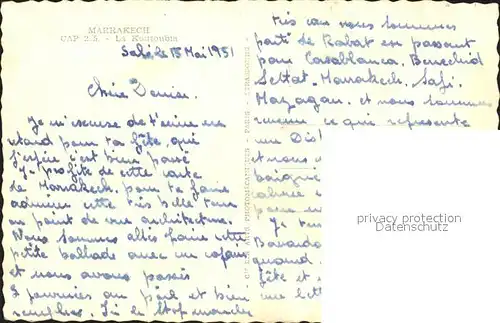 MARRAKECH
CAP 2.5. - La Koutoubia
Salé le 15 Mai 1951
Chère Denise.
Je m'excuse de t'écrire en
retard pour ta fête, qui
j'espère s'est bien passé
Je profite de cette carte
de Marrakech pour te faire
admirer cette très belle tour
au point de vue architecture.
Nous sommes allés faire cette
petite ballade avec un copain
et nous avons passés
3 journées au poil et bien
remplies. Ici le stop marche
très car nous sommes
parti de Rabat en passant
par Casablanca. Berrechid
Settat. Marrakech. Safi.
Mazagan. et nous sommes
revenu ce qui représente
une Dis
et nous
baign
Je
quand
fête et
une lett
privacy protection